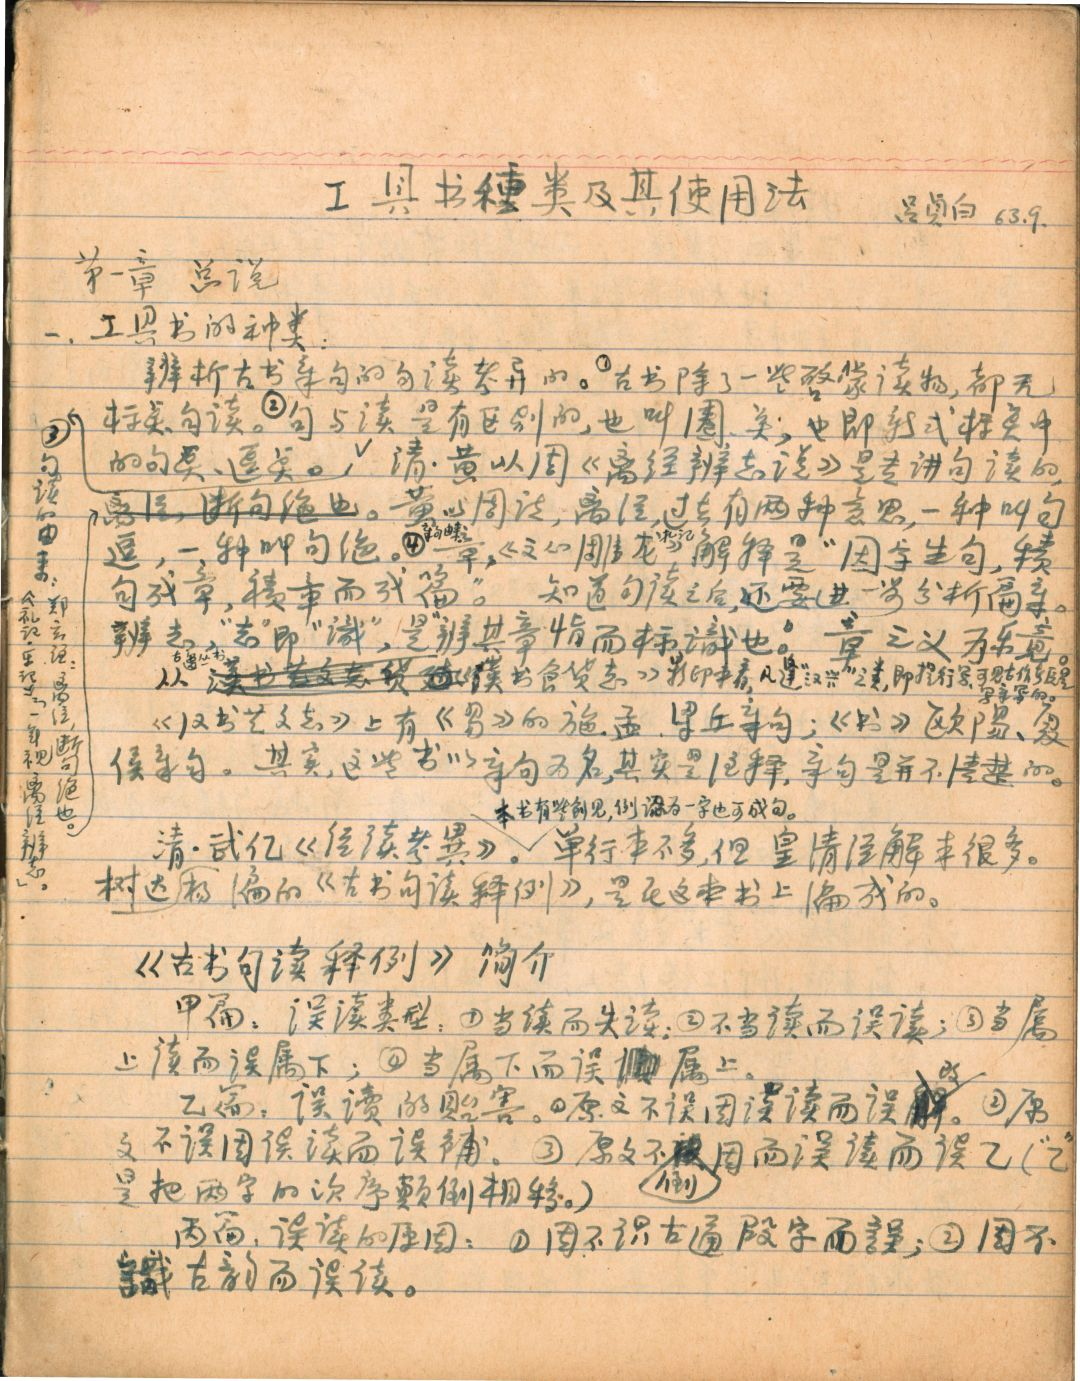 工具书種类及其使用法
吕貞白 63.9.
第一章 总说
一、工具书的种类:
辨析古书章句的句读考异的。①古书除了一些啓蒙读物,都无
标奌句读。②句与读是有区别的,也叫圈奌,也即新式标奌中
的句奌、逗奌。清·黄以周《离经辨志说》是专讲句读的,
离经,断句绝也。黄以周说,离经,过去有两种意思,一种叫句
逗,一种叫句绝。④章,《文心雕龙》解释是“因字生句,積
句成章,積章而成篇”。知道句读之后,还要进一步分析篇章。
辨志,“志”即“識”,是“辨其章恉而标識也。”章之义为乐竟。
从《漢书食货志》影印本看,凡逢“汉兴”之类,即提行写
《汉书艺文志》上有《易》的施、孟、梁丘章句;《书》欧阳、夏
侯章句。其实,这些书以章句为名,其实是注释,章句是并不清楚的。
本书有些創见,例如认为一字也可成句。
清·武亿《经读考異》。单行本不多,但皇清经解本很多。
杨树达编的《古书句读释例》,是在这本书上编成的。
③句读的由来:郑玄注:离经,断句绝也。
《礼记·学记》:“一年视离经辨志”。
《古书句读释例》简介
甲篇:误读类型:①当读而失读;②不当读而误读;③当属
上读而误属下;④当属下而误属上。
乙篇:误读的贻害。①原文不误因误读而误改。②原
文不误因误读而误補。③原文不倒因而误读而误乙(“乙”
是把两字的次序颠倒相移。)
丙篇:误读的原因:①因不识古通叚字而誤;②因不
識古韵而误读。